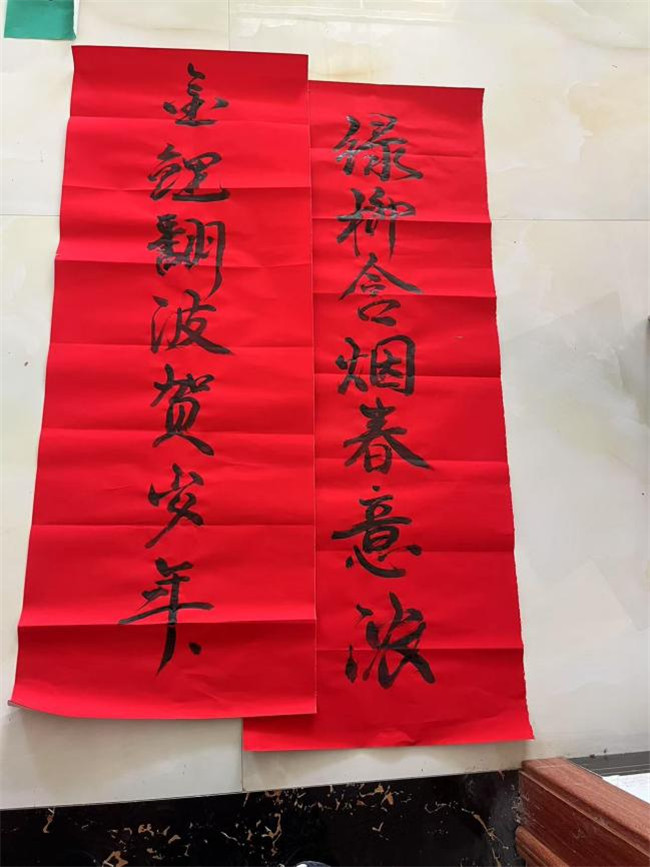 绿柳含烟春意浓
金鲤翻波贺岁年